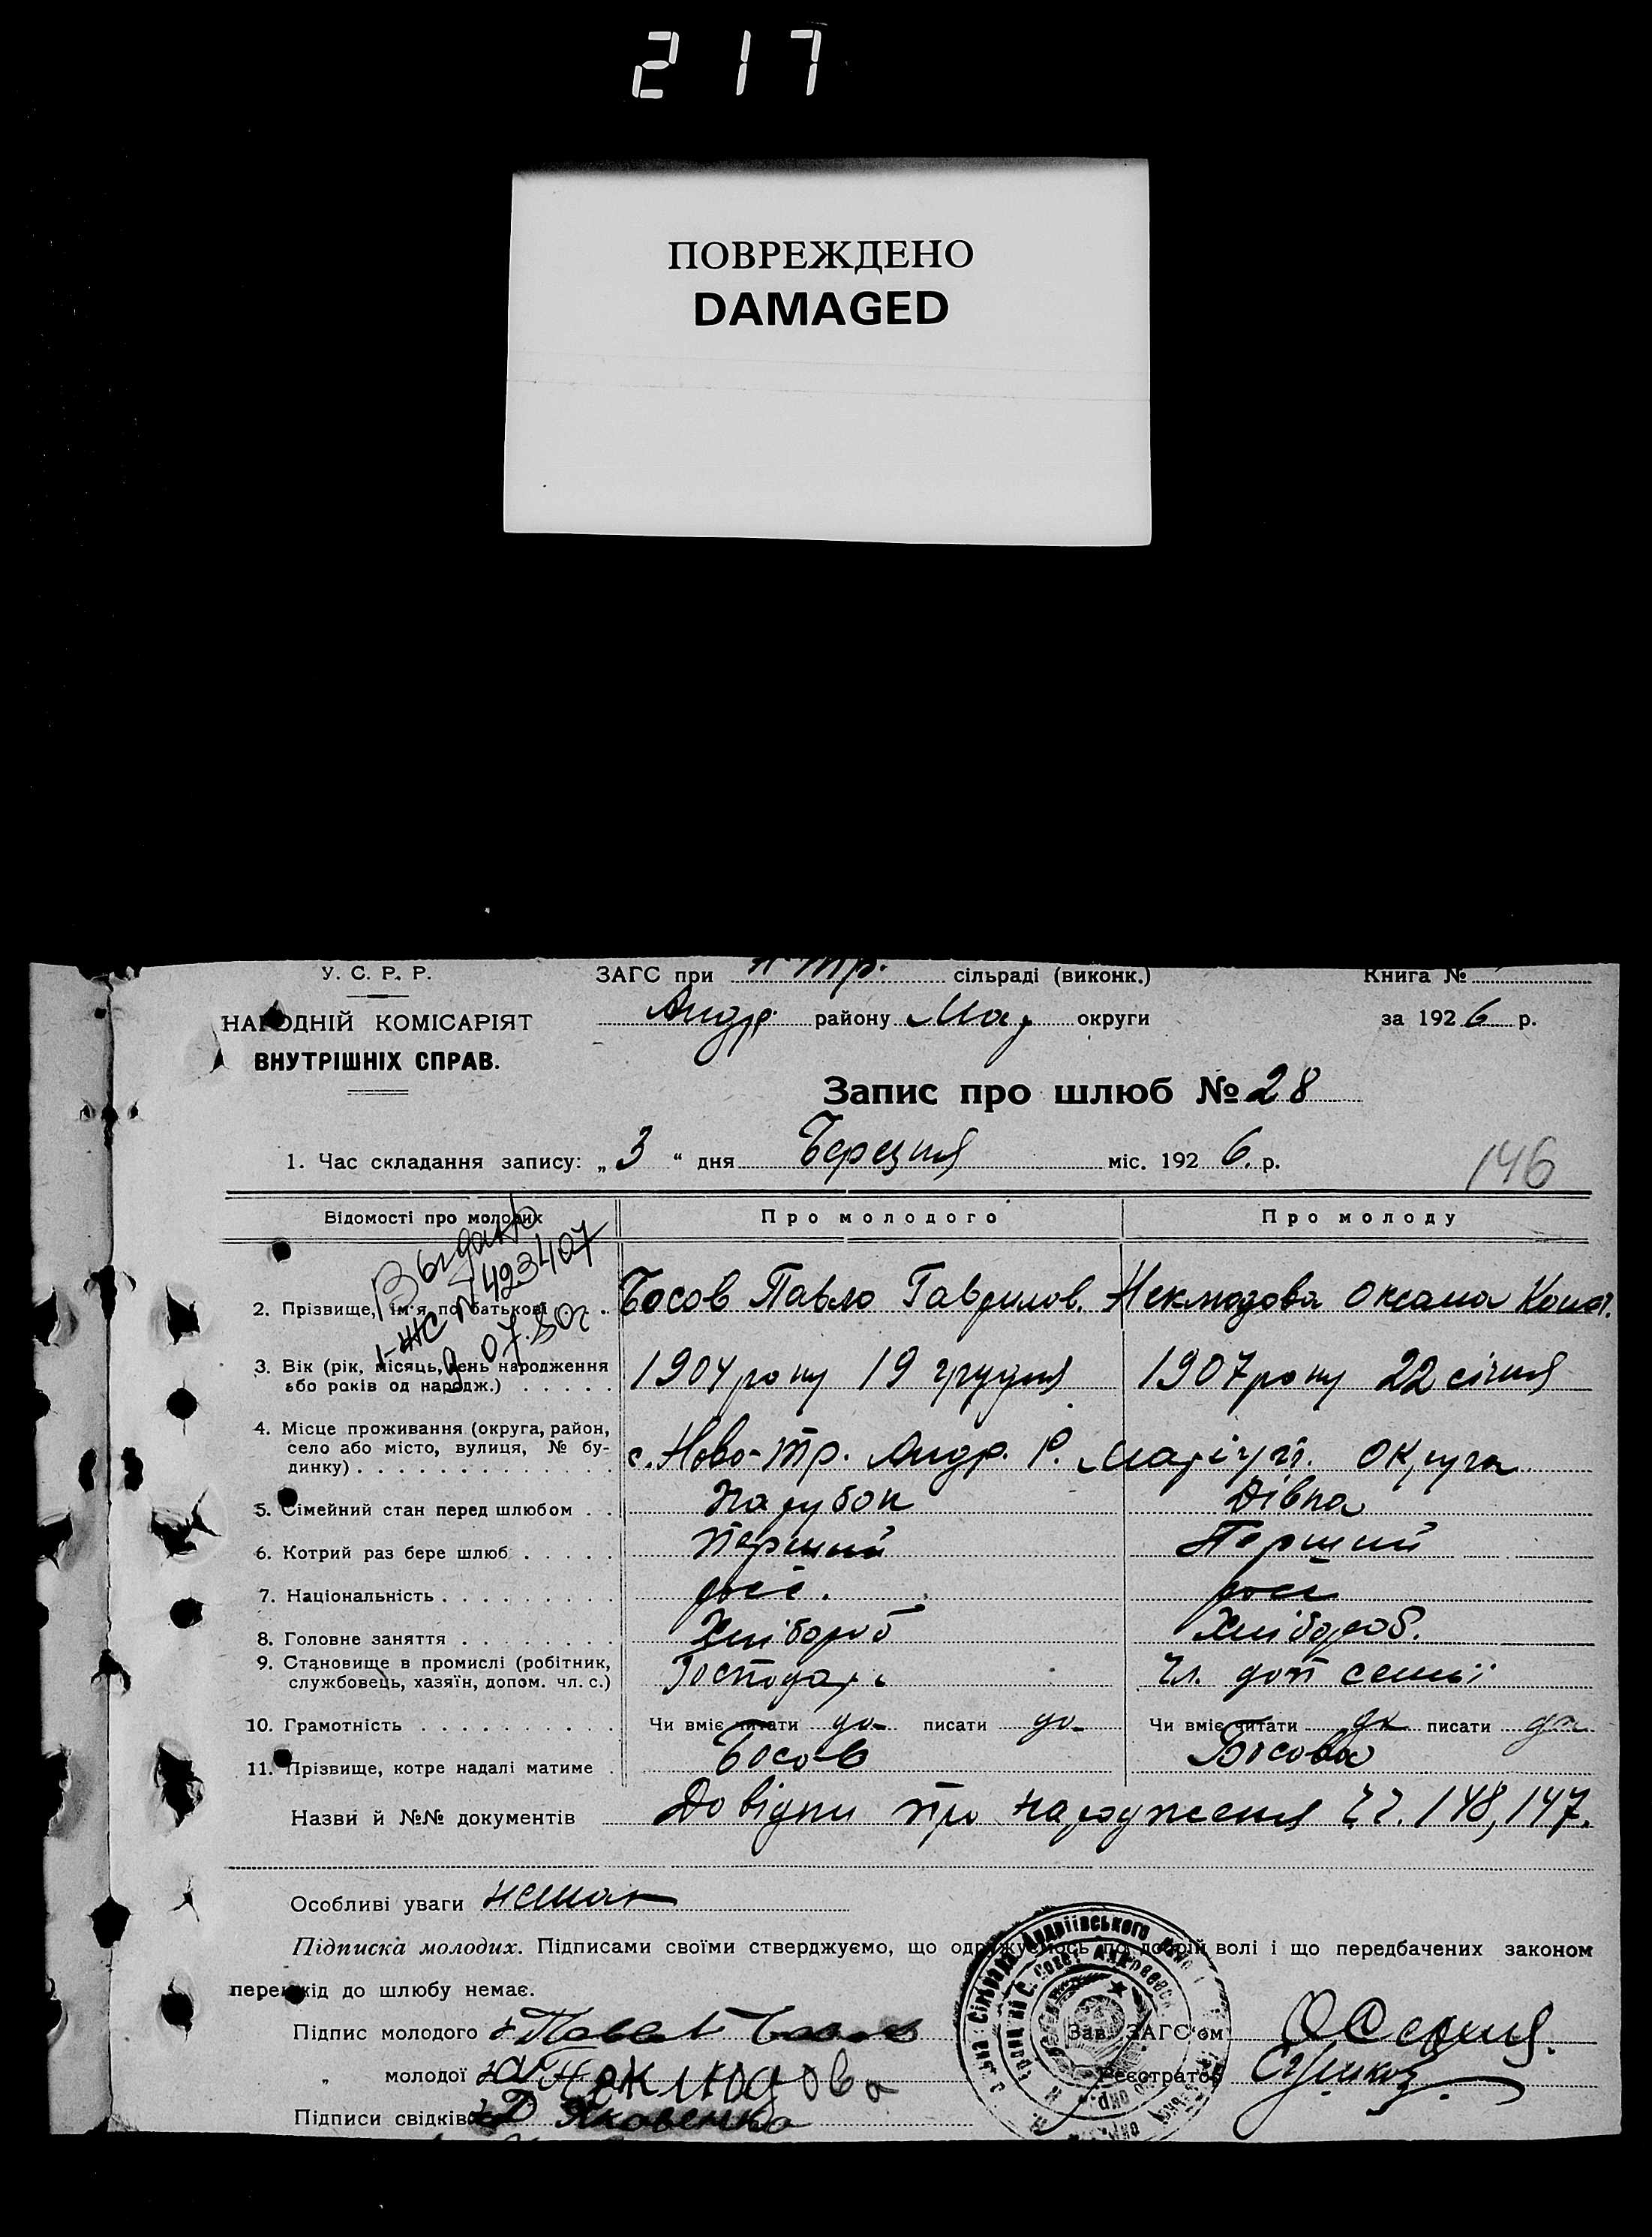 217
ПОВРЕЖДЕНО
DAMAGED
У. С. Р. Р.
ЗАГС при Н-Тр. сільраді (виконк.)
Книга №
НАРОДНІЙ КОМІСАРІЯТ
Андр. району Мар. округи
за 1926 р.
ВНУТРІШНІХ СПРАВ.
Запис про шлюб № 28
1. Час складання запису: „3“ дня Березня міс. 1926. р.
146
Відомості про молодих
Про молодого
Про молоду
Выдано
1-ЖС № 423407
9 07. 80г
2. Прізвище, ім'я по батькові . .
Босов Павло Гаврилов.
Неклюдова Оксана Конст.
3. Вік (рік, місяць, день народження
або років од народж.) . . . . .
1904 року 19 грудня
1907 року 22 січня
4. Місце проживання (округа, район,
село або місто, вулиця, № бу-
динку) . . . . . . . . . . . .
с. Ново-Тр. Андр. Р. Маріуп. округа
5. Сімейний стан перед шлюбом . .
Парубок
Дівка
6. Котрий раз бере шлюб . . . . .
Перший
Перший
7. Національність . . . . . . . . .
рос.
рос
8. Головне заняття . . . . . . . .
Хлібороб
Хлібороб.
9. Становище в промислі (робітник,
службовець, хазяїн, допом. чл. с.)
Господарь
Чл. доп семьї
10. Грамотність . . . . . . . . . .
Чи вміє читати да писати да
Чи вміє читати да писати да
11. Прізвище, котре надалі матиме .
Босов
Босова
Назви й №№ документів Довідки про народження чч. 148, 147.
Особливі уваги немає
Підписка молодих. Підписами своїми стверджуємо, що одружуємось по добрій волі і що передбачених законом
перешкід до шлюбу немає.
Підпис молодого Павел Босов
Зав. ЗАГС'ом
„ молодої Неклюдова
Реєстратор
Підписи свідків Д Яковенко